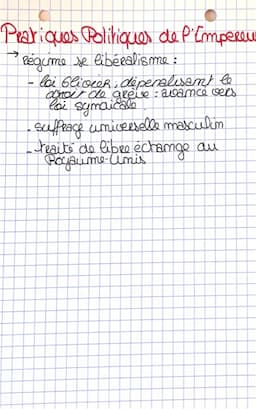 Pratiques Politiques de l'Empereu
→ Régime se libéralisme :
- loi Ollivier, dépénalisant le
droit de grève : avancé vers
loi syndicale
- suffrage universelle masculin
- traité de libre échange au
Royaume-Unis